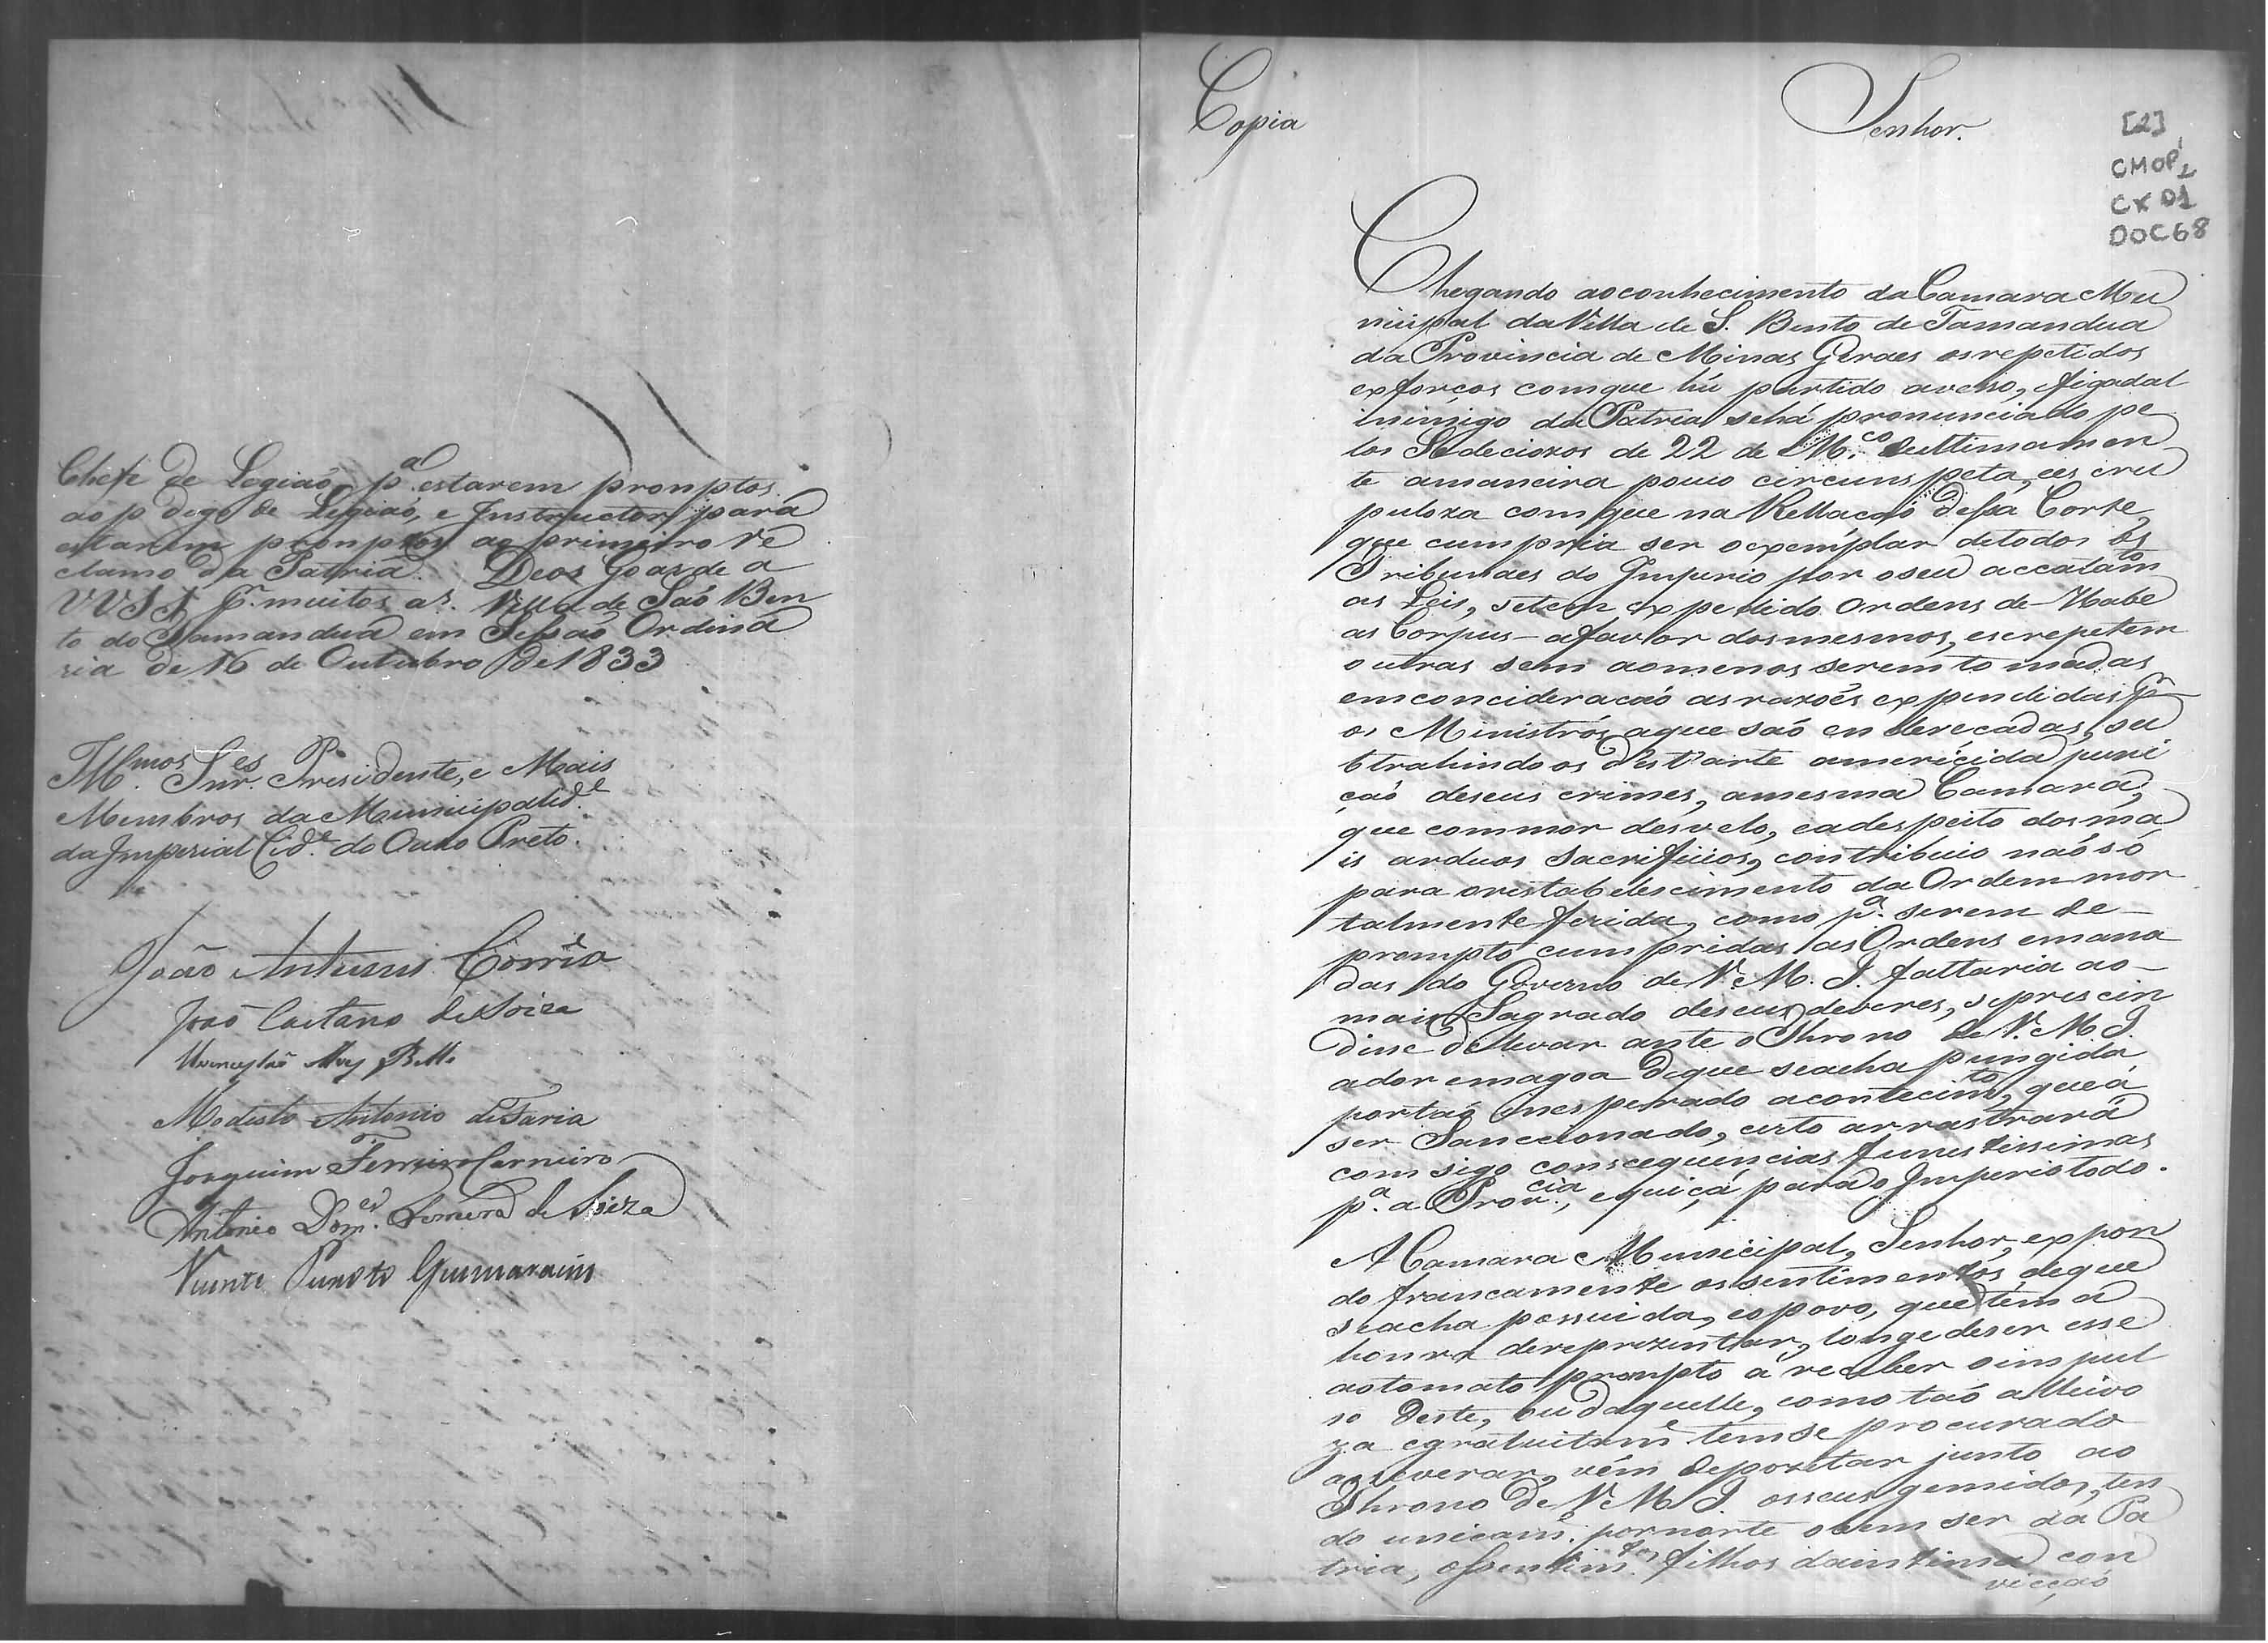 Chefe de Legião, p.ª estarem promptos
ao p digo de Legião, e Instructor pará
estarem promptos ao primeiro re
clamo da Patria. Deos Goarde a
VVSS p.r muitos a.s Villa de Saõ Ben
to do Tamanduá em Sessaõ Ordina
ria de 16 de Outubro de 1833
Ill.mos Snr.es Presidente, e Mais
Membros da Municipalid.e
da Imperial Cid.e do Ouro Preto.
João Antunes Corrêa
João Caetano de Soiza
Modesto Antonio de Faria
Joaquim Ferreira Carneiro
Antonio Dom.es Ferreira de Soiza
Vicente Guimaraens
Copia
Senhor.
[2]
CMOP
CX 01
DOC 68
Chegando ao conhecimento da Camara Mu
nicipal da Villa de S. Bento de Tamandua
da Provincia de Minas Geraes os repetidos
exforços com que hú partido avesso, figadal
inimigo da Patria se há pronunciado pe
los Sedeciozos de 22 de M.ço e ultimamen
te amaneira pouco circunspeta, e es cru
puloza com que na Rellacaõ dessa Corte,
que cumpria ser o exemplar de todos os
Tribunaes do Imperio por o seu accatam.to
as Leis, se tem expedido Ordens de - Habe
as Corpus - a favor dos mesmos, e se repetem
outras sem ao menos serem to madas
em concideracaõ as razoẽs expendidas p.r
os Ministros a que saõ en dereçadas, su
btrahindo os dest'arte a merícida puni
çaõ de seus crimes, a mesma Camara,
que com mor desvelo, e a despeito dos ma
is arduos sacrificios, contribuio naõ só
para o restabelescimento da Ordem mor
talmente ferida, como p.ª serem de -
prompto cumpridas as Ordens emana
das do Governo de V. M. I. faltaria ao -
mais Sagrado de seus deveres, se prescin
disse de levar ante o Throno de V. M. I.
a dor e magoa de que se acha pungida
por taõ inesperado acontecim.to, que á
ser Sanccionado, certo arrastrará
com sigo consequencias funestissimas
p.ª a Prov.cia, e quiçá para o Imperio todo.
A Camara Municipal, Senhor, expon
do francamente os sentimentos de que
se acha possuida, e o povo, que tem a
honra de reprezentar, longe de ser esse
automato prompto á receber o impul
so deste, ou daquelle, como taõ alleivo
za e gratuitam.e tem se procurado
asseverar, vém depozitar junto ao
Throno de V. M. I. os seus gemidos, ten
do unicam. por norte o bem ser da Pa
tria, e os sentim.tos filhos da intima con
vicçaõ